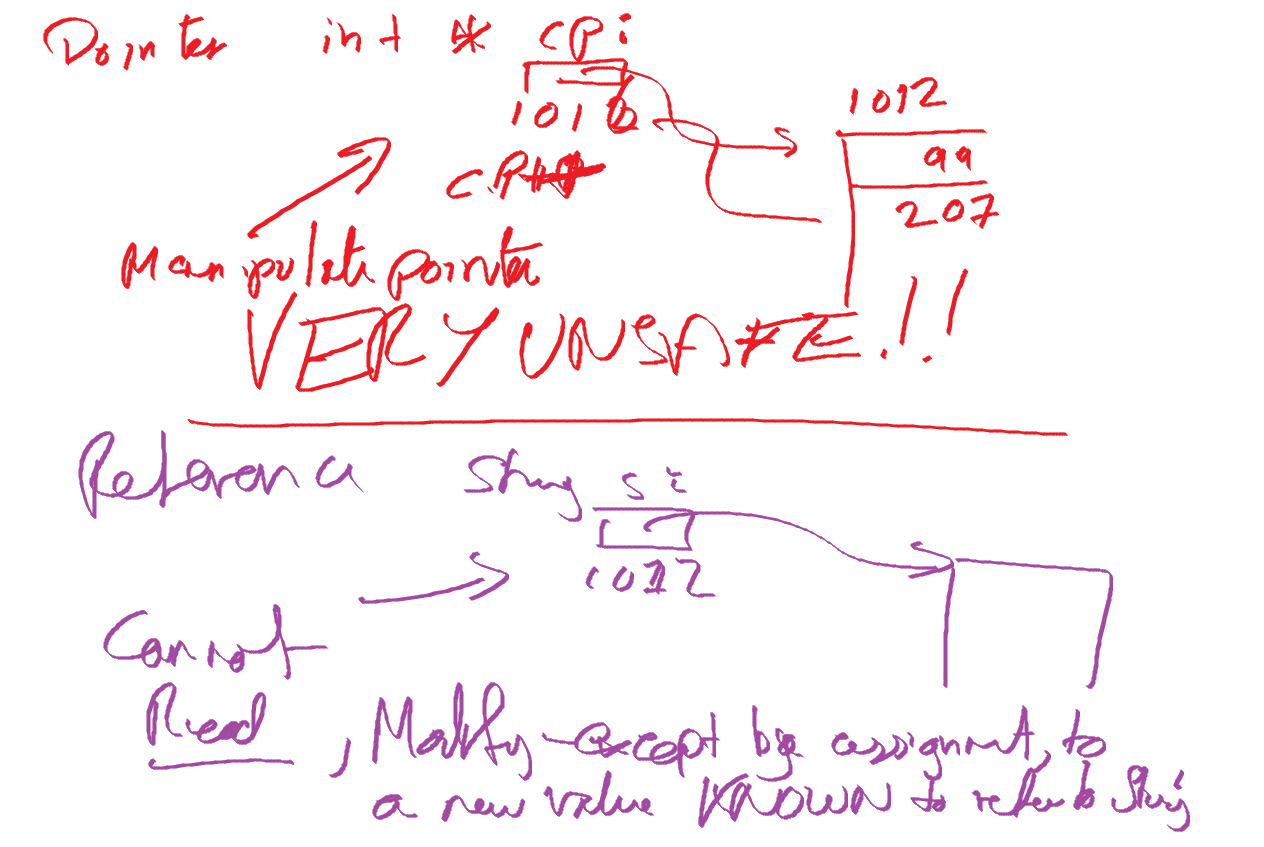 Pointer int * cp;
1012
1016
99
cp++
207
Manipulate pointer
VERY UNSAFE!!
Reference String s;
1012
Cannot
Read, Modify - except by assignment, to
a new value KNOWN to refer to String